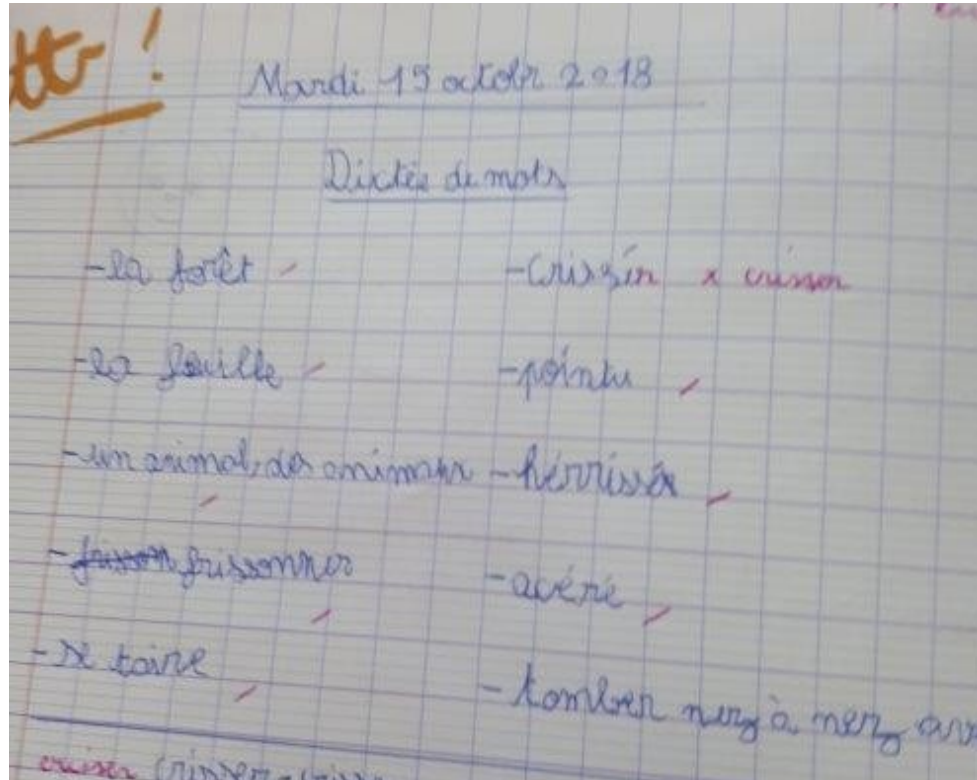 Mardi 15 octobr 2018
Dictée de mots
-la forêt
-la feuille
-un animal, des animaux
-frissonner
-se taire
-Criszin x crisser
-pointu
-hérrissér
-acéré
-tomber nez à nez